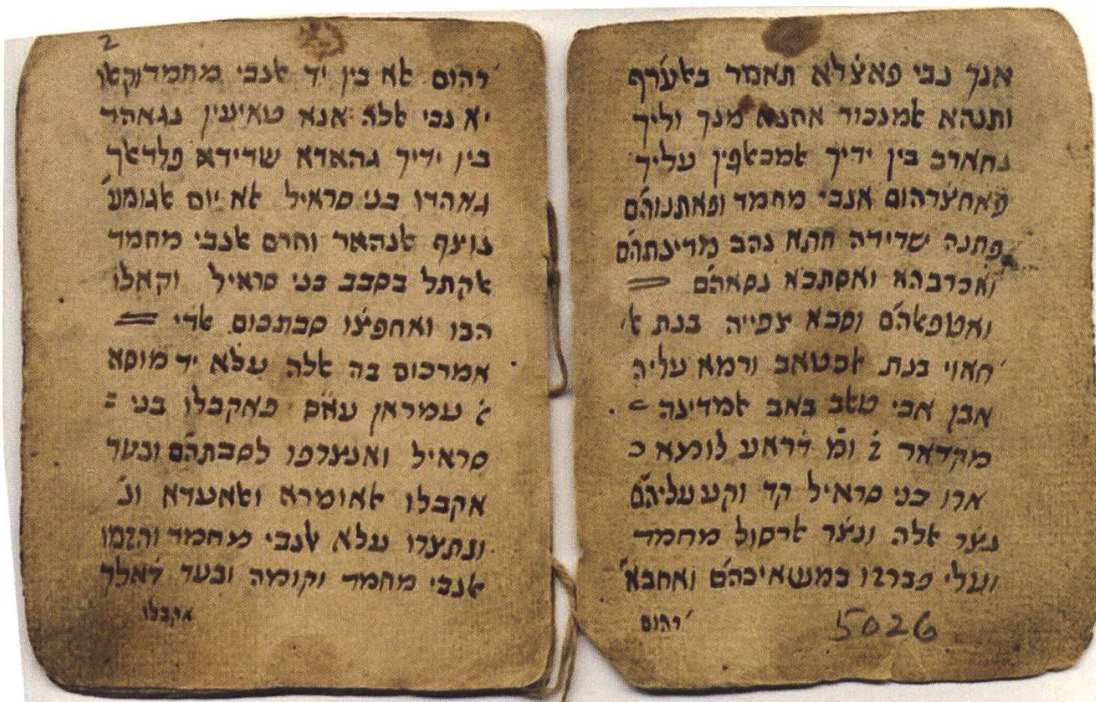 אנך נבי פאצ̇לא תאמר באלערף
ותנהא אלמנכור אחנא מנך וליך
נחארב בין ידיך אלמכאלפין עליך
פאחצ̇רהום אלנבי מחמד ופאתנוהם
פתנה שדידה חתא נהב מדינתהם
ואכרבהא ואסתבא נסאהם
ואטפאלהם וסבא צפייה בנת אל׳
׳חאוי בנת אכטאב ורמא עליה
אבן אבי טאלב באב אלמדינה
מקדאר ב̇ ומ̇ דראע לומצא כ
ארו בני סראיל קד וקע עליהם
נצ̇ר אללה ונצ̇ר ארסול מחמד
ועלי פברזו במשאיכהם ואחבא׳
׳רהום
5026
2
׳רהום אלא בין יד אלנבי מחמד וקאלו
יא נבי אללה אנא טאיעין נגאהד
בין ידיך גהאדא שדידא פלדאלך
גאהדו בני סראיל אלא יום אלגומע׳
נוצף אלנהאר וחרם אלנבי מחמד
אלקתל בסבב בני סראיל וקאלו
הבו ואחפצ̇ו סבתכום אלדי
אמרכום בה אללה עלא יד מוסא
ג̇ עמראן עאלס פאקבלו בני
סראיל ואנצרפו לסבתהם ובעד
אקבלו אלאומרא ואלאעדא ונ׳
ונתצרו עלא אלנבי מחמד והזמו
אלנבי מחמד וקומה ובעד דאלך
אקבלו